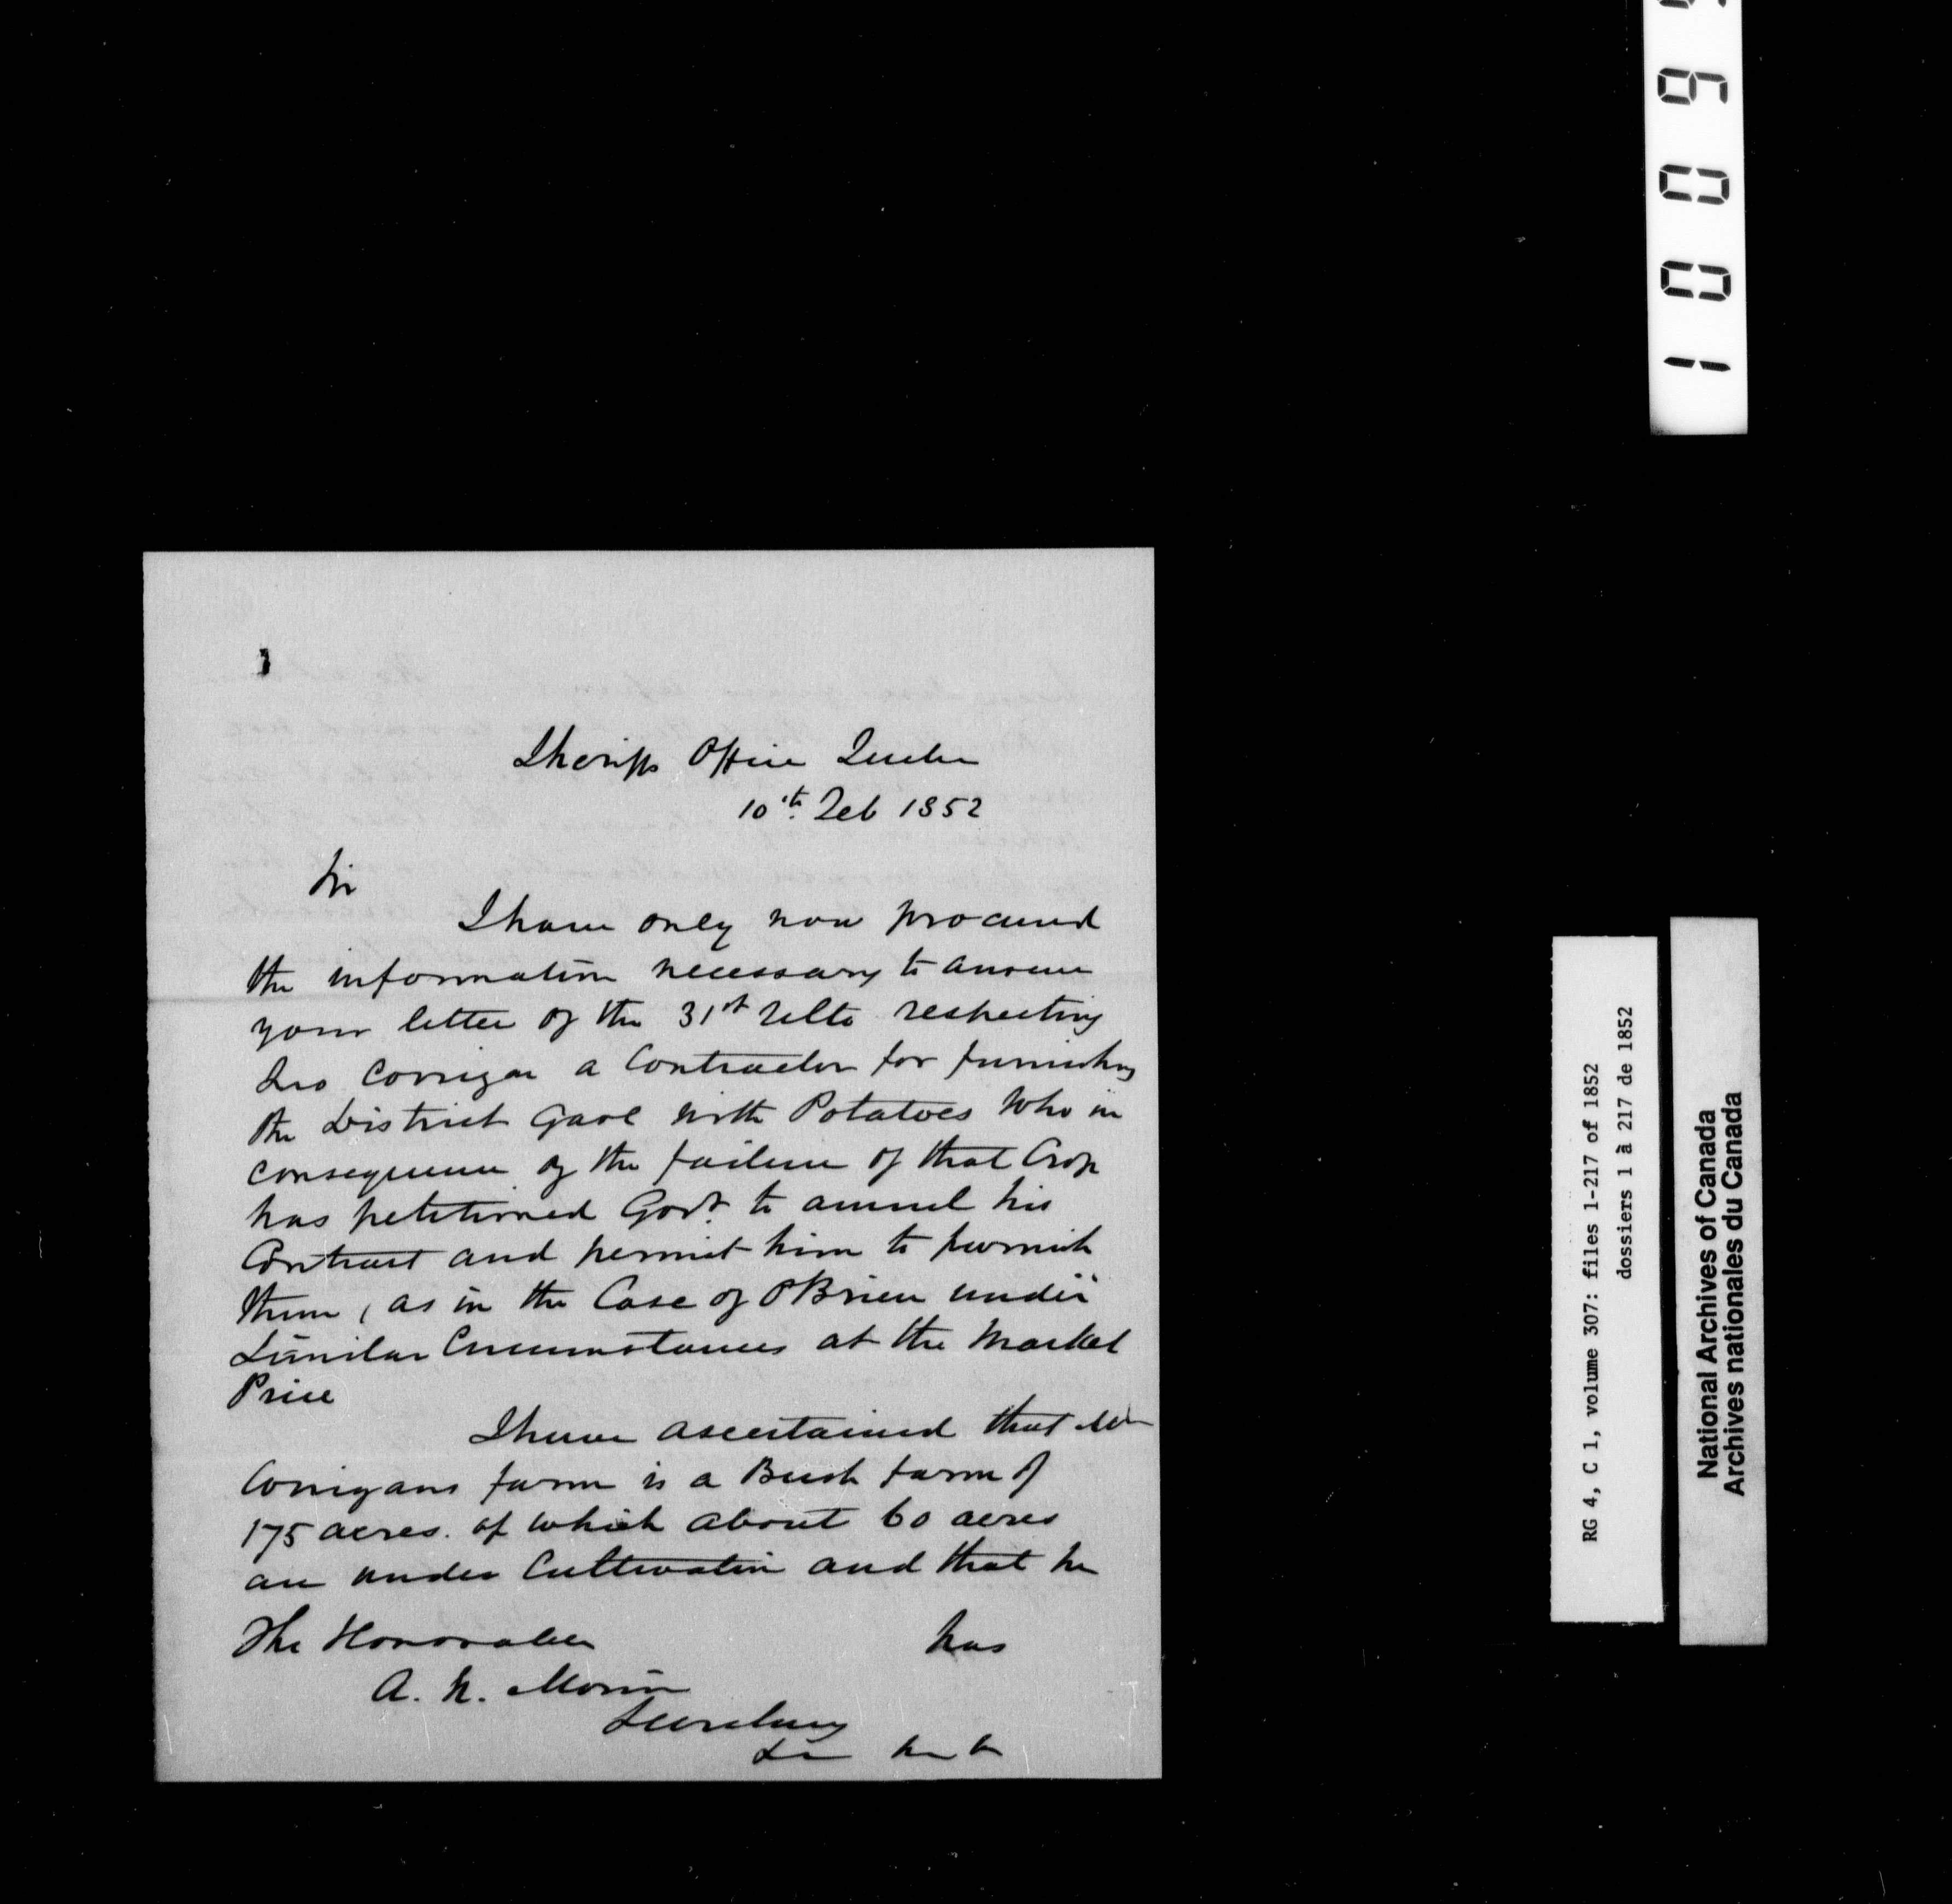 Sheriffs Office Quebec
10th. Feb 1852
Sir
I have only now procured
the information necessary to answer
your letter of the 31st Ulto respecting
Corrigan a Contractor for furnishing
the District Gaol with Potatoes Who in
consequence of the failure of that Crop
has petitioned Govt. to annul his
Contract and permit him to furnish
them, as in the Case of OBrien under
Similar Circumstances at the Market
Price
I have ascertained that Mr
Corrigans farm is a Bush farm of
175 acres. of which about 60 acres
are under Cultivation and that he
has
The Honorable
A. N. Morin
Secretary
RG 4, C 1, volume 307: files 1-217 of 1852
dossiers 1 à 217 de 1852
National Archives of Canada
Archives nationales du Canada
1 0 0 9